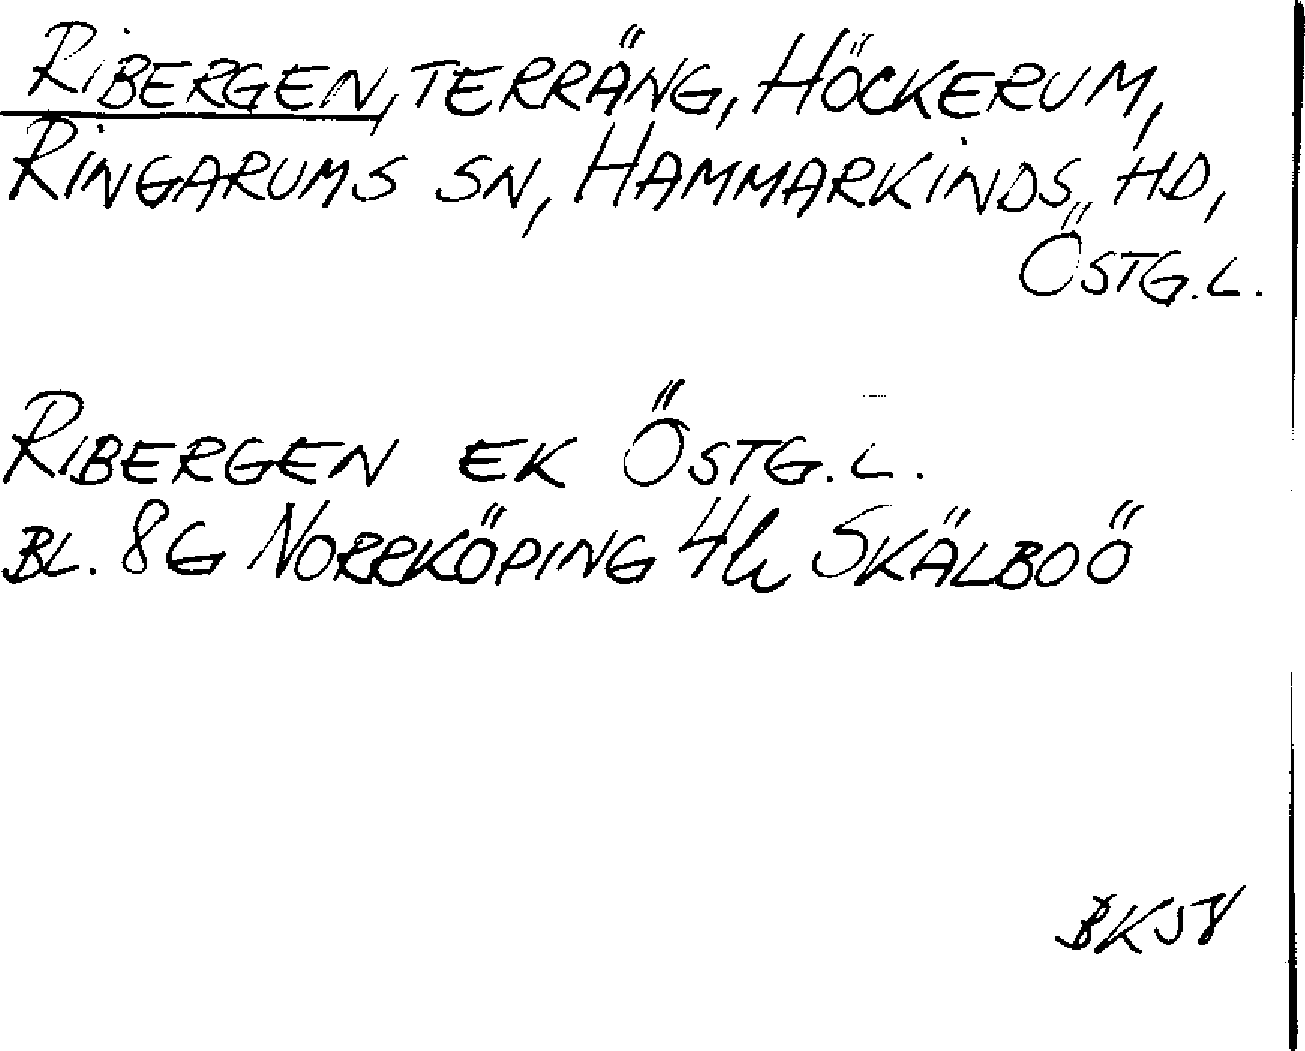 RIBERGEN, TERRÄNG, HÖCKERUM,
RINGARUMS SN, HAMMARKINDS HD,
ÖSTG.L.
RIBERGEN EK ÖSTG.L.
BL. 8G NORRKÖPING 4h SKÄLBOÖ